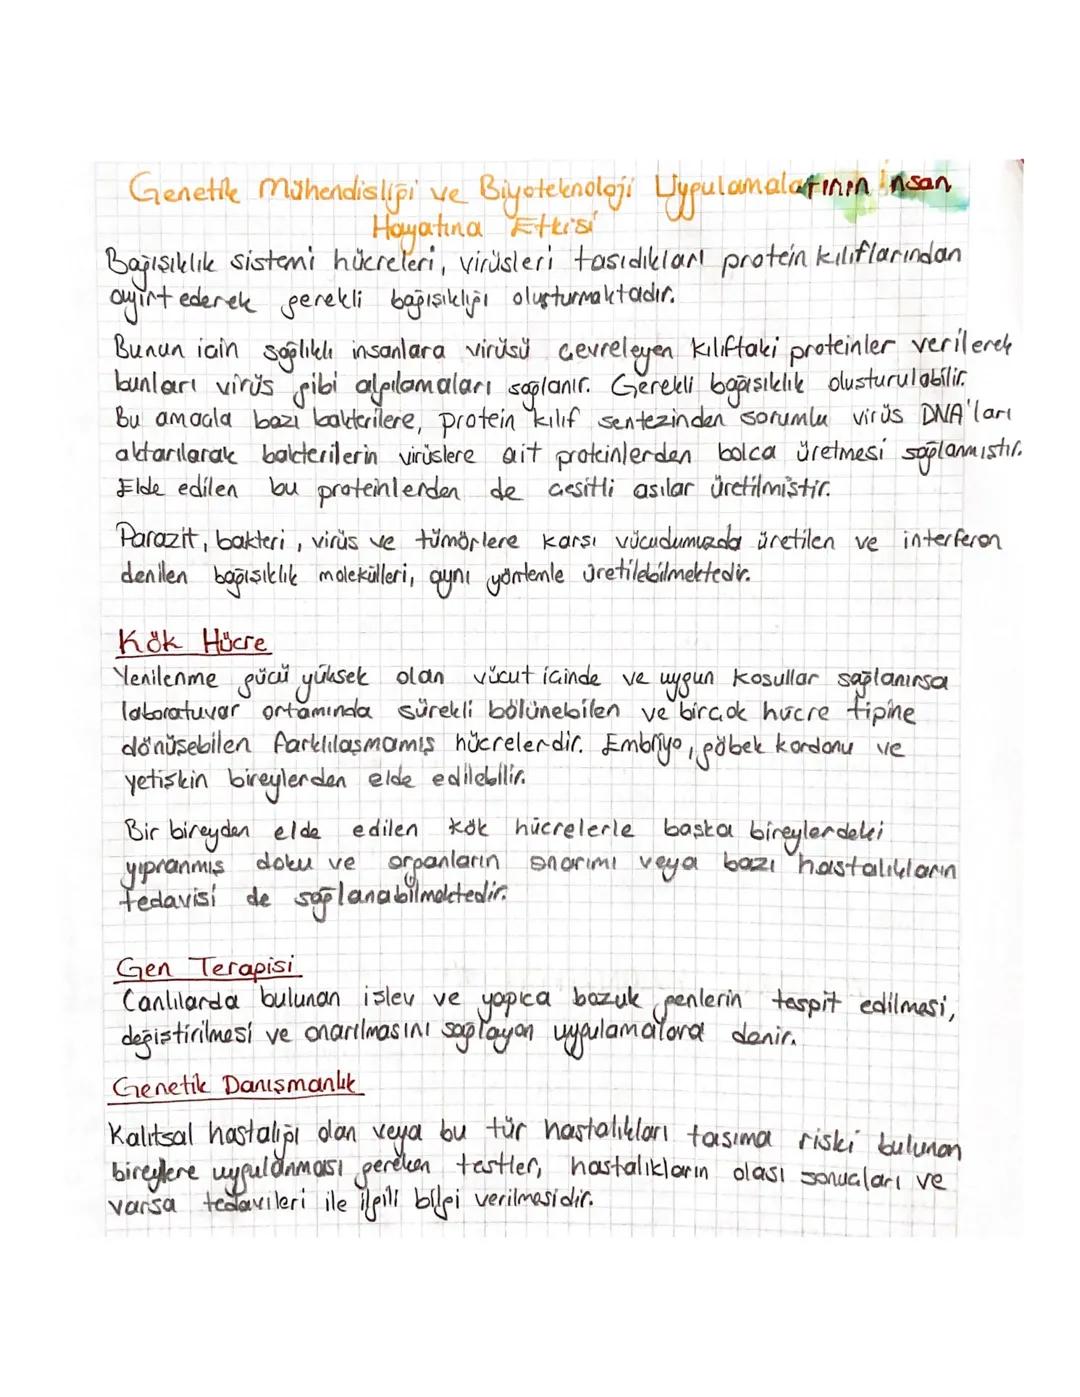 Genetik Mühendisliği ve Biyoteknoloji Uygulamalarının İnsan
Hayatına Etkisi
Bağışıklık sistemi hücreleri, virüsleri tasıdıkları protein kılıflarından
ayırt ederek gerekli bağışıklığı oluşturmaktadır.
Bunun icin sağlıklı insanlara virüsü cevreleyen kılıftaki proteinler verilerek
bunları virüs gibi algılamaları sağlanır. Gerekli bağışıklık olusturulabilir.
Bu amacla bazı bakterilere, protein kılıf sentezinden sorumlu virüs DNA'ları
aktarılarak bakterilerin virüslere ait proteinlerden bolca üretmesi sağlanmıstır.
Elde edilen bu proteinlerden de cesitli asılar üretilmistir.
Parazit, bakteri, virüs ve tümörlere karsı vücudumuzda üretilen ve interferon
denilen bağışıklık molekülleri, aynı yöntemle üretilebilmektedir.
Kök Hücre
Yenilenme gücü yüksek olan vücut icinde ve uygun kosullar sağlanırsa
laboratuvar ortamında sürekli bölünebilen ve bircok hücre tipine
dönüsebilen farklılasmamış hücrelerdir. Embriyo, göbek kordonu ve
yetişkin bireylerden elde edilebilir.
Bir bireyden elde edilen kök hücrelerle baska bireylerdeki
yıpranmış doku ve organların onarımı veya bazı hastalıkların
tedavisi de sağlanabilmektedir.
Gen Terapisi
Canlılarda bulunan islev ve yapıca bozuk genlerin tespit edilmesi,
değiştirilmesi ve onarılmasını sağlayan uygulamalara denir.
Genetik Danışmanlık
Kalıtsal hastalığı olan veya bu tür hastalıkları tasıma riski bulunan
bireylere uygulanması gereken testler, hastalıkların olası sonucları ve
varsa tedavileri ile ilgili bilgi verilmesidir.